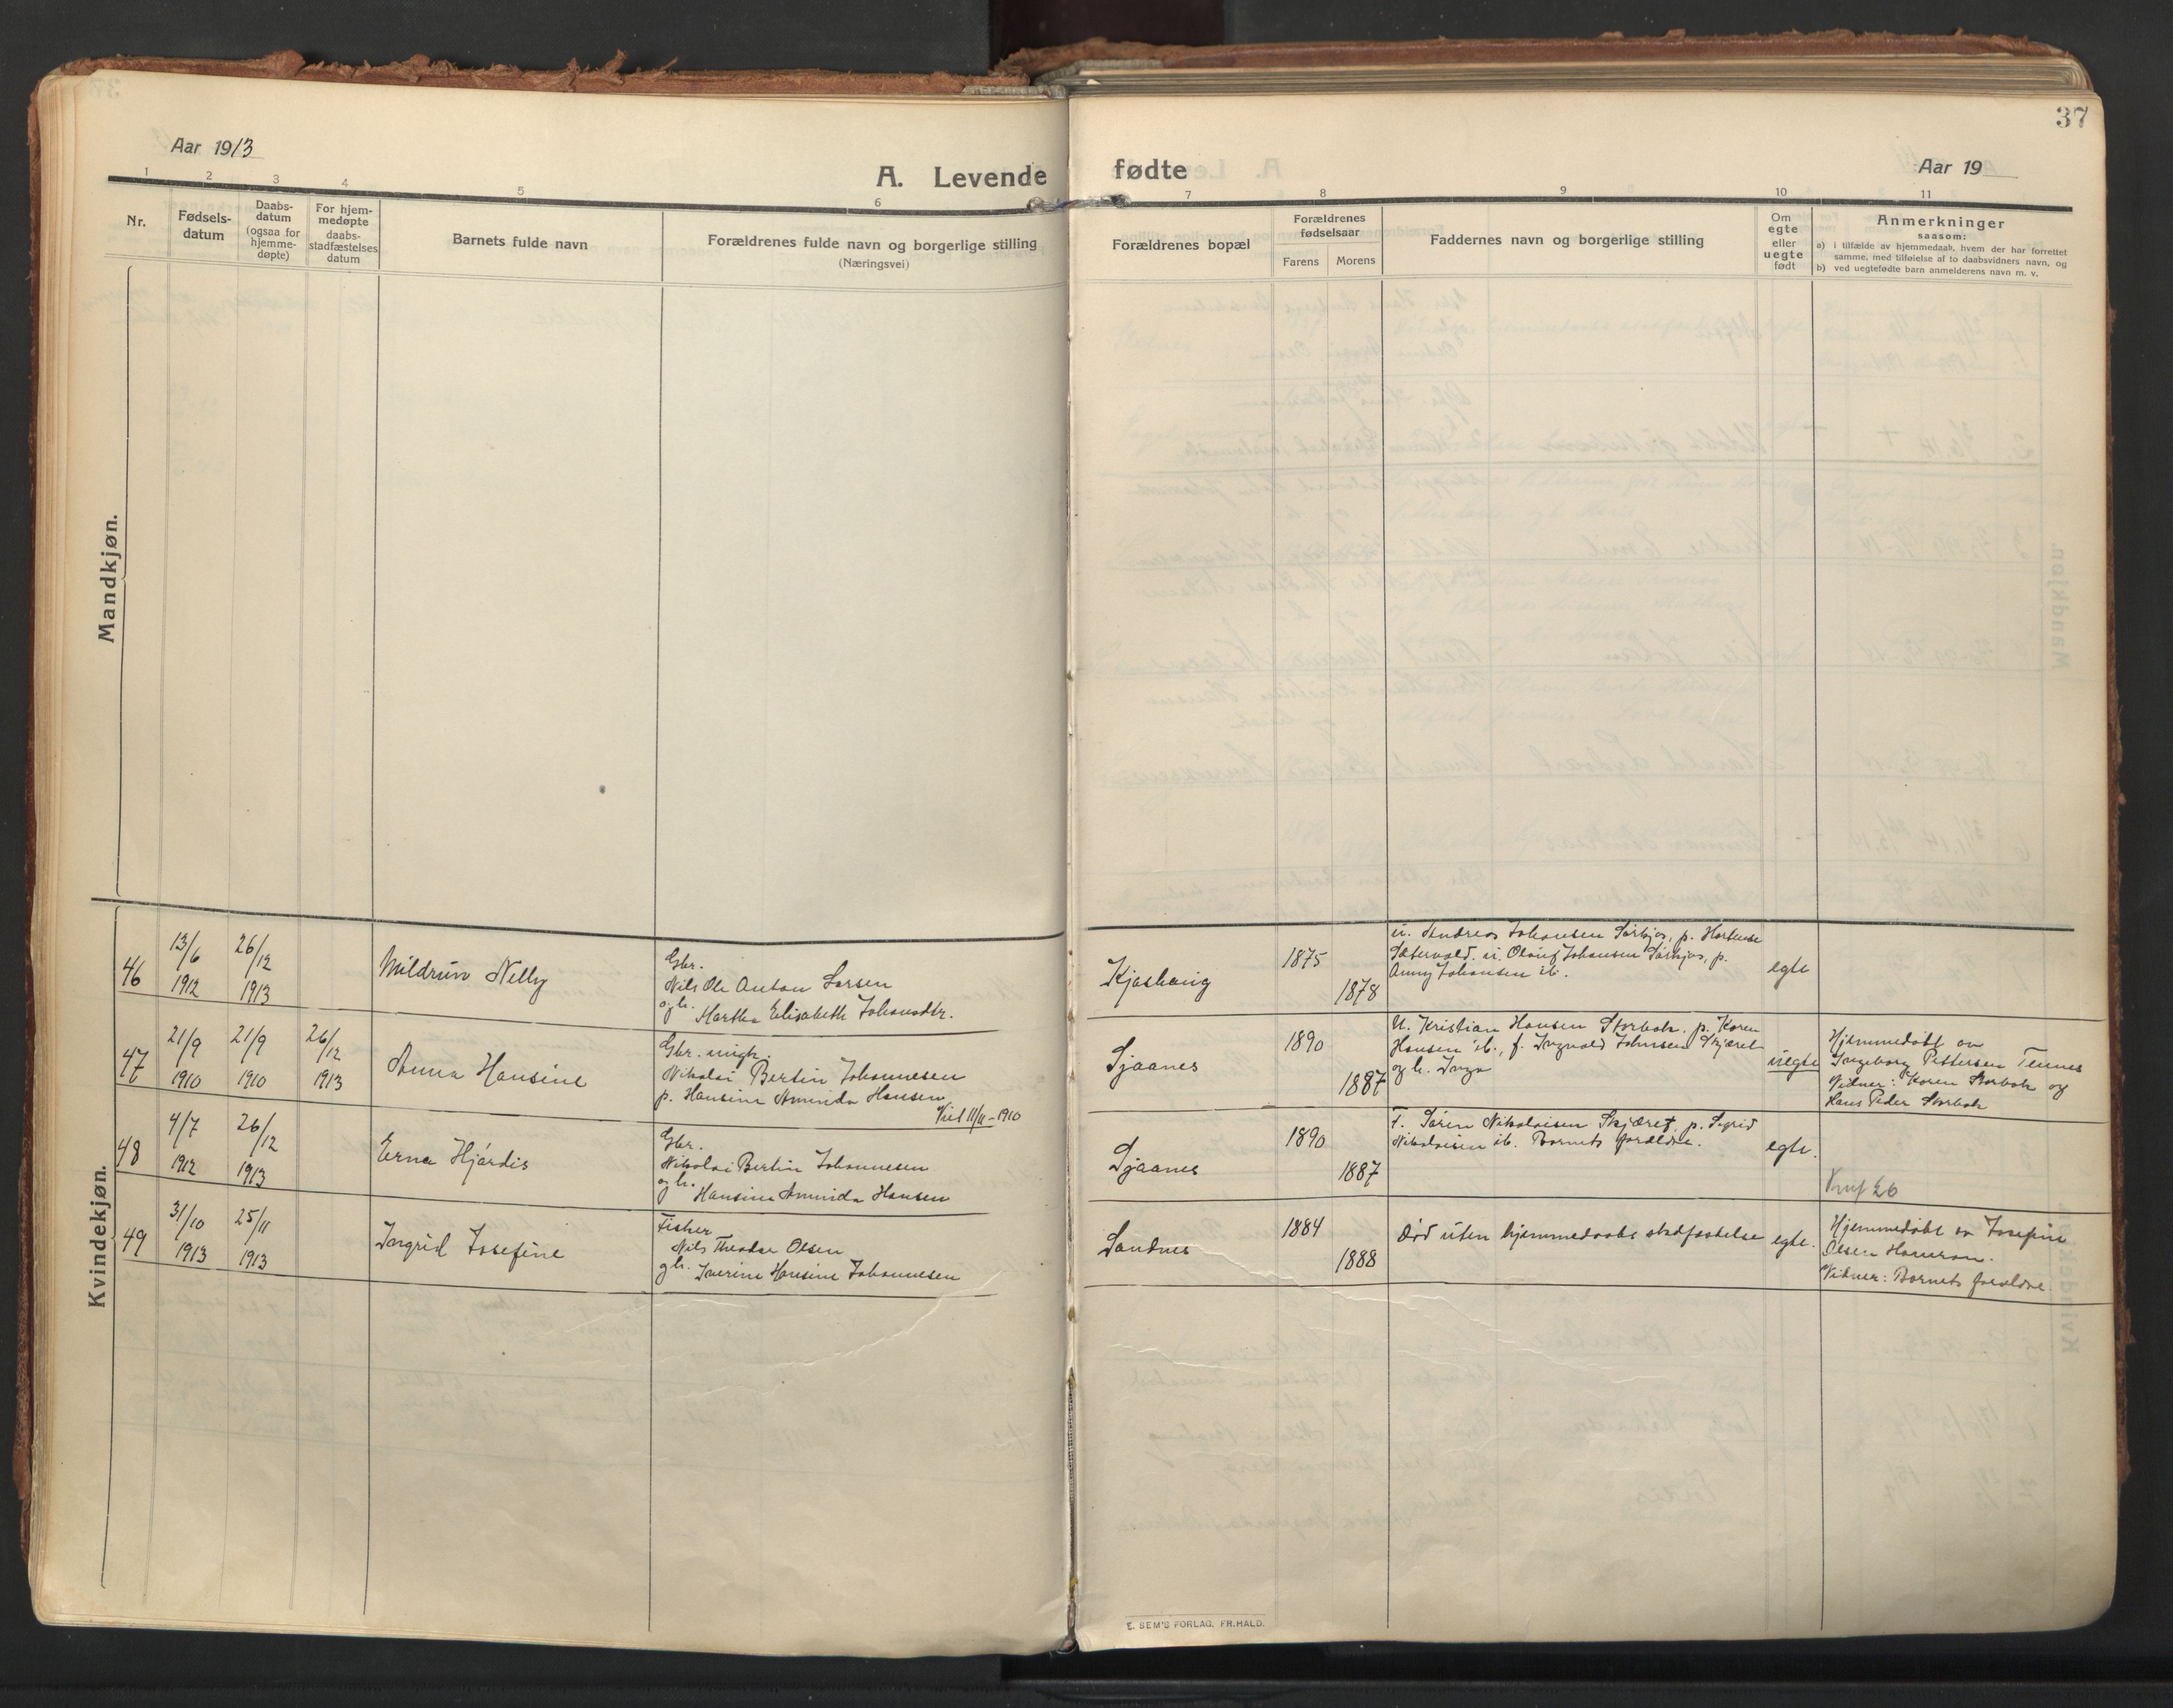 37
Aar 1913
A. Levende
fødte
Aar 19
1 2 3 4 5 6 7 8 9 10 11
Nr.
Fødsels-
datum
Daabs-
datum
(ogsaa for
hjemme-
døpte)
For hjem-
medøpte
daabs-
stadfæstelses
datum
Barnets fulde navn
Forældrenes fulde navn og borgerlige stilling
(Næringsvei)
Forældrenes bopæl
Forældrenes
fødselsaar
Farens Morens
Faddernes navn og borgerlige stilling
Om
egte
eller
uegte
født
Anmerkninger
saasom:
a) i tilfælde av hjemmedaab, hvem der har forrettet
samme, med tilføielse af to daabsvidners navn, og
b) ved uegtefødte barn anmelderens navn m. v.
Mandkjøn.
Kvindekjøn.
46
13/6
1912
26/12
1913
Mildrun Nelly
Gbr.
Nils Ole Anton Larsen
og h.
Martha Elisabeth Johansdtr.
1875
1878
u. Andreas Johansen Sørkjos, p. Hortense
Sætervold. u. Oluf Johansen Sørkjos, p.
Anny Johansen ib.
egte
47
21/9
1910
21/9
1910
26/12
1913
Anna Hansine
Gbr. ungk.
Nikolai Bertin Johannesen
p. Hansine Aminda Hansen
Viet 11/11-1910
Sjaanes
1890
1887
U. Kristian Hansen Storbak, p. Karen
Hansen ib., f. Ingvald Johnsen Skjæret
og h. Inga
uegte
Hjemmedøbt av
Ingeborg Pettersen Tennes
Vidner: Karen Storbak og
Hans Peder Storbak
48
4/7
1912
26/12
1913
Erna Hjördis
Gbr.
Nikolai Bertin Johannesen
og h.
Hansine Aminda Hansen
Sjaanes
1890
1887
F. Sören Nikolaisen Skjæret, p. Sigrid
Nikolaisen ib. Barnets forældre.
egte.
49
31/10
1913
25/11
1913
Ingrid Josefine
Fisker
Nils Theodor Olsen
g h. Iverine Hansine Johannesen
Sandnes
1884
1888
Død uten hjemmedaabs stadfæstelse
egte.
Hjemmedøbt av Josefine
Olsen
Vidner: Barnets forældre.
E. SEM'S FORLAG, FR.HALD.